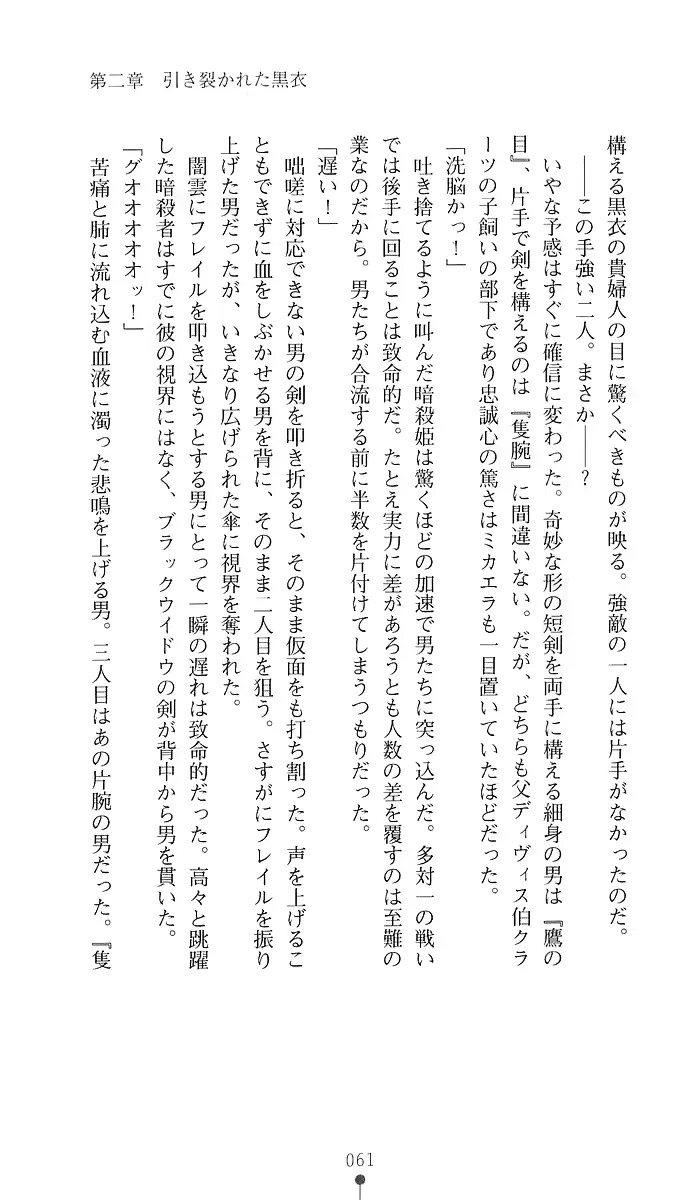 第二章　引き裂かれた黒衣
構える黒衣の貴婦人の目に驚くべきものが映る。強敵の一人には片手がなかったのだ。
――この手強い二人。まさか――？
いやな予感はすぐに確信に変わった。奇妙な形の短剣を両手に構える細身の男は『鷹の
目』、片手で剣を構えるのは『隻腕』に間違いない。だが、どちらも父ディヴィス伯クラ
ーツの子飼いの部下であり忠誠心の篤さはミカエラも一目置いていたほどだった。
「洗脳かっ！」
吐き捨てるように叫んだ暗殺姫は驚くほどの加速で男たちに突っ込んだ。多対一の戦い
では後手に回ることは致命的だ。たとえ実力に差があろうとも人数の差を覆すのは至難の
業なのだから。男たちが合流する前に半数を片付けてしまうつもりだった。
「遅い！」
咄嗟に対応できない男の剣を叩き折ると、そのまま仮面をも打ち割った。声を上げるこ
ともできずに血をしぶかせる男を背に、そのまま二人目を狙う。さすがにフレイルを振り
上げた男だったが、いきなり広げられた傘に視界を奪われた。
闇雲にフレイルを叩き込もうとする男にとって一瞬の遅れは致命的だった。高々と跳躍
した暗殺者はすでに彼の視界にはなく、ブラックウイドウの剣が背中から男を貫いた。
「グオオオオオッ！」
苦痛と肺に流れ込む血液に濁った悲鳴を上げる男。三人目はあの片腕の男だった。『隻
061